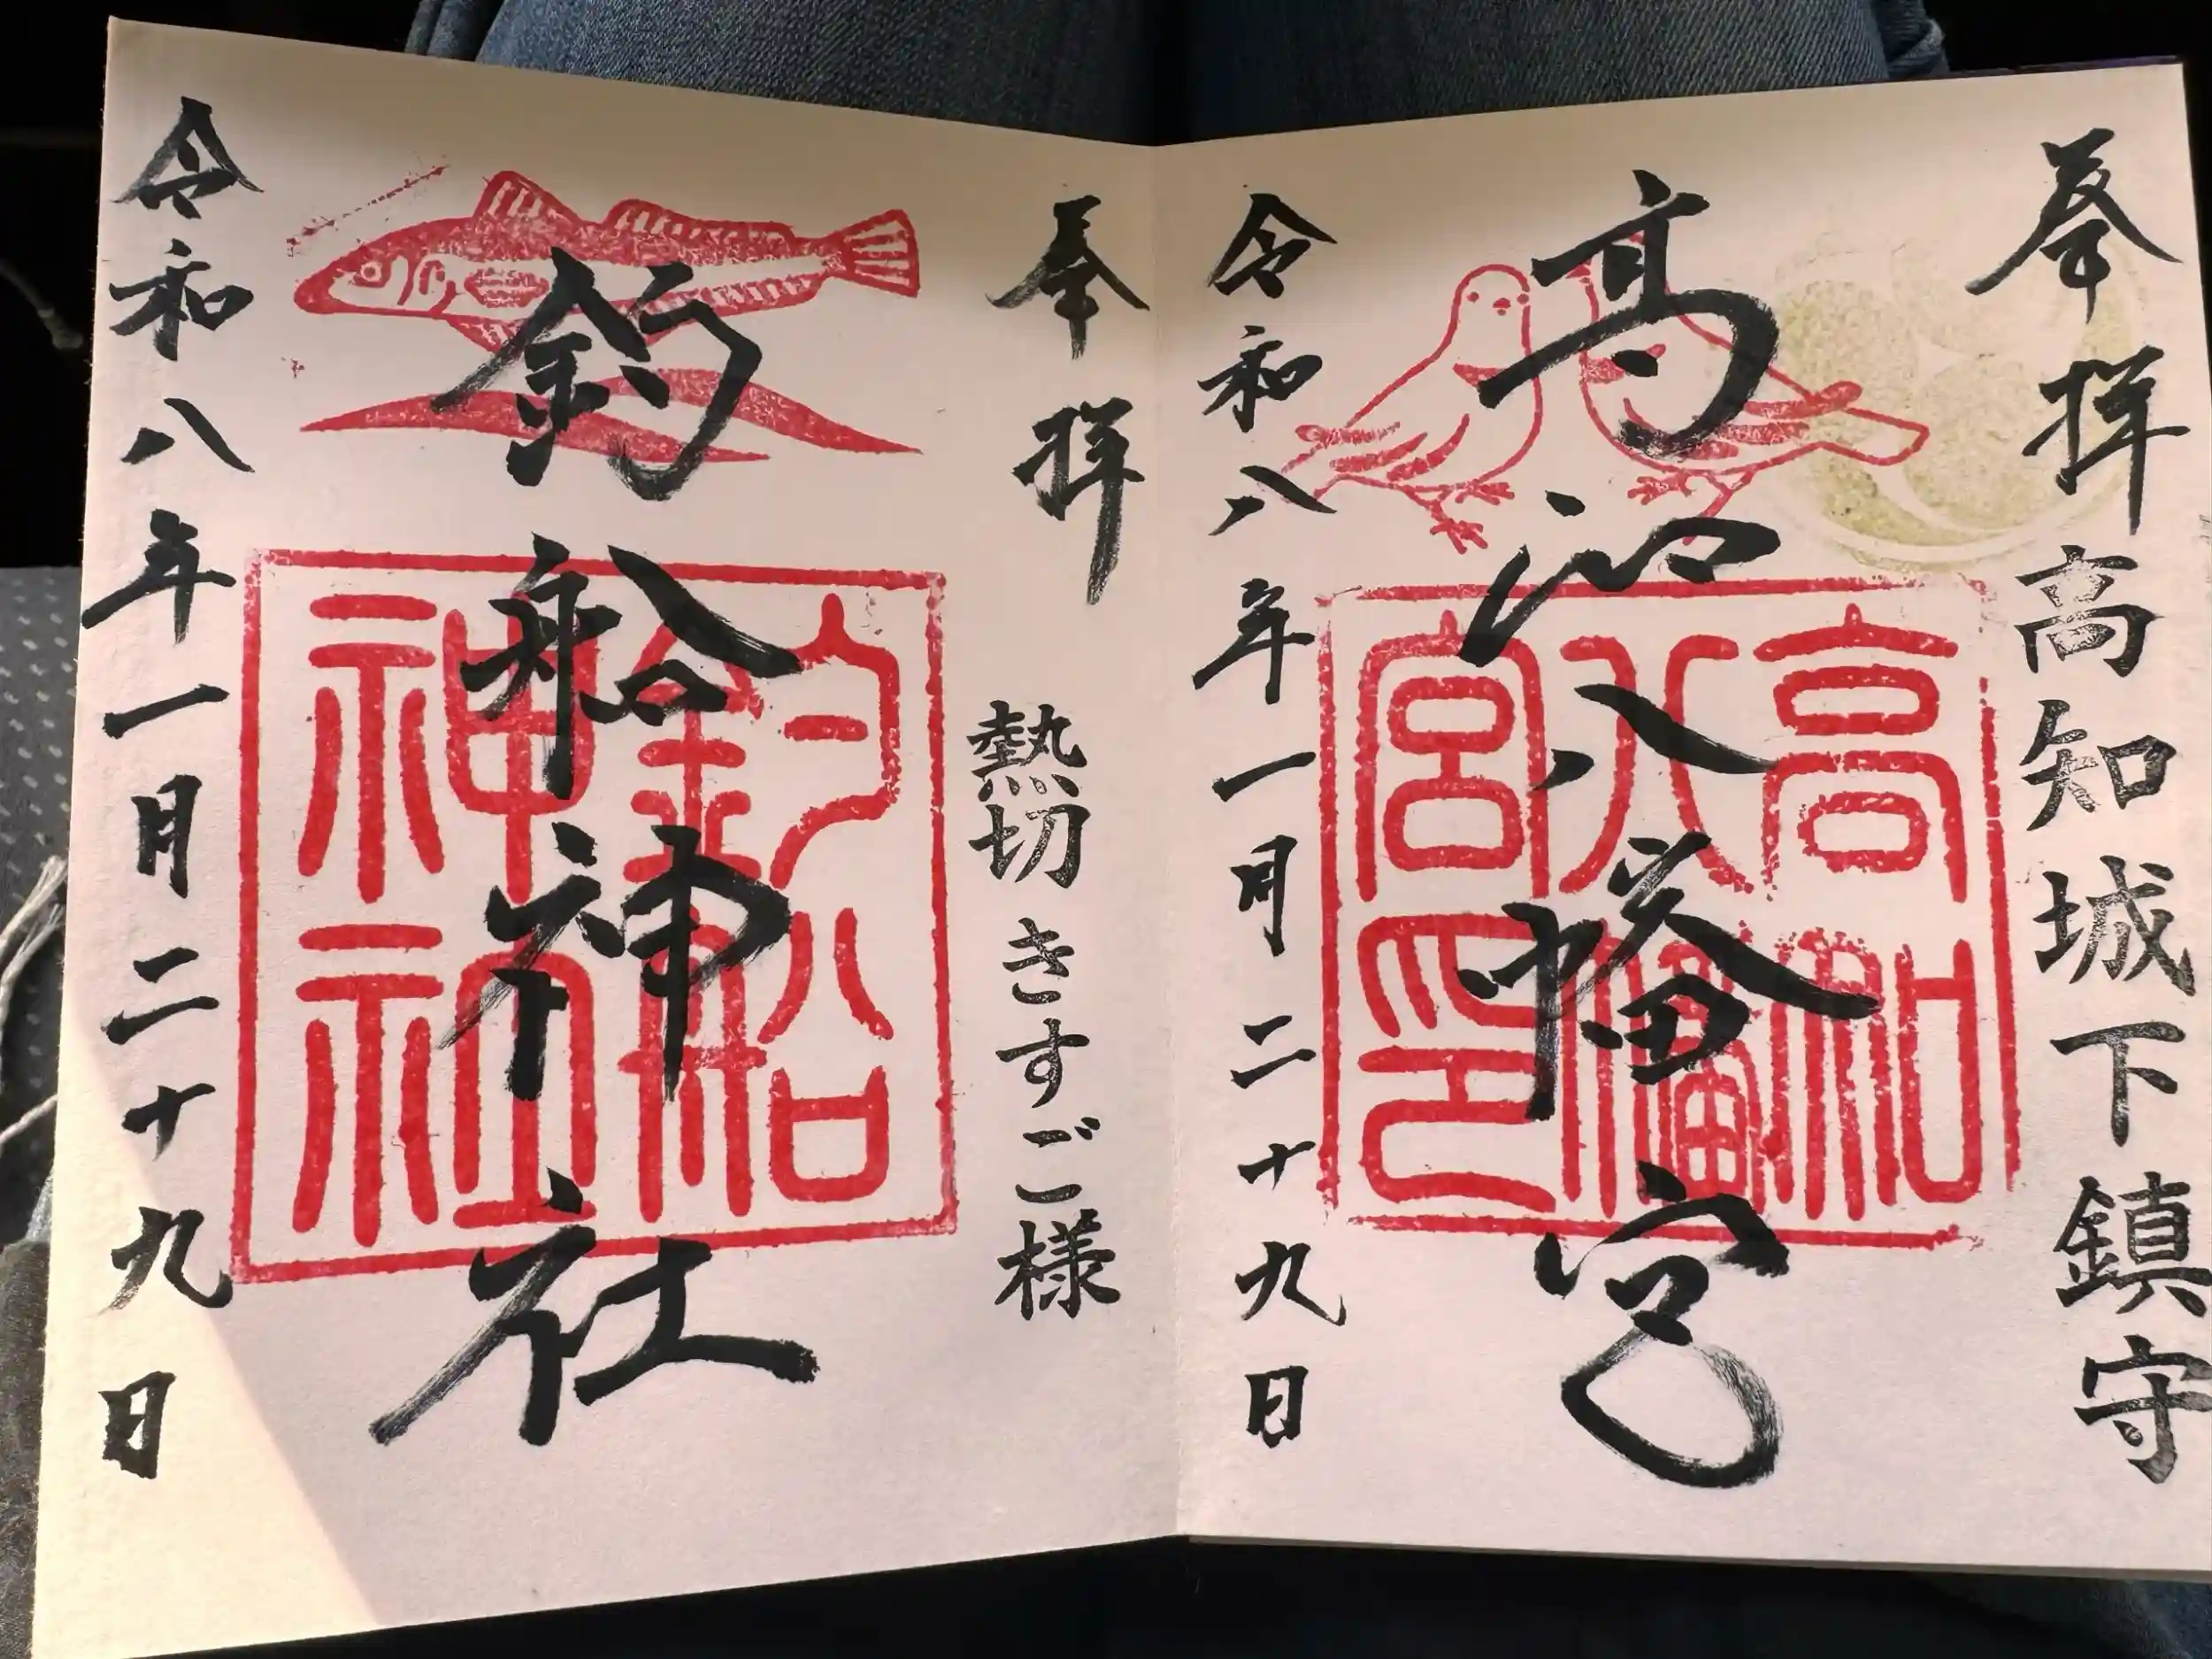 奉拝 高知城下鎮守
高知八幡宮
高知八幡宮印
令和八年一月二十九日
奉拝
熱切きすご様
釣船神社
釣船神社
令和八年一月二十九日